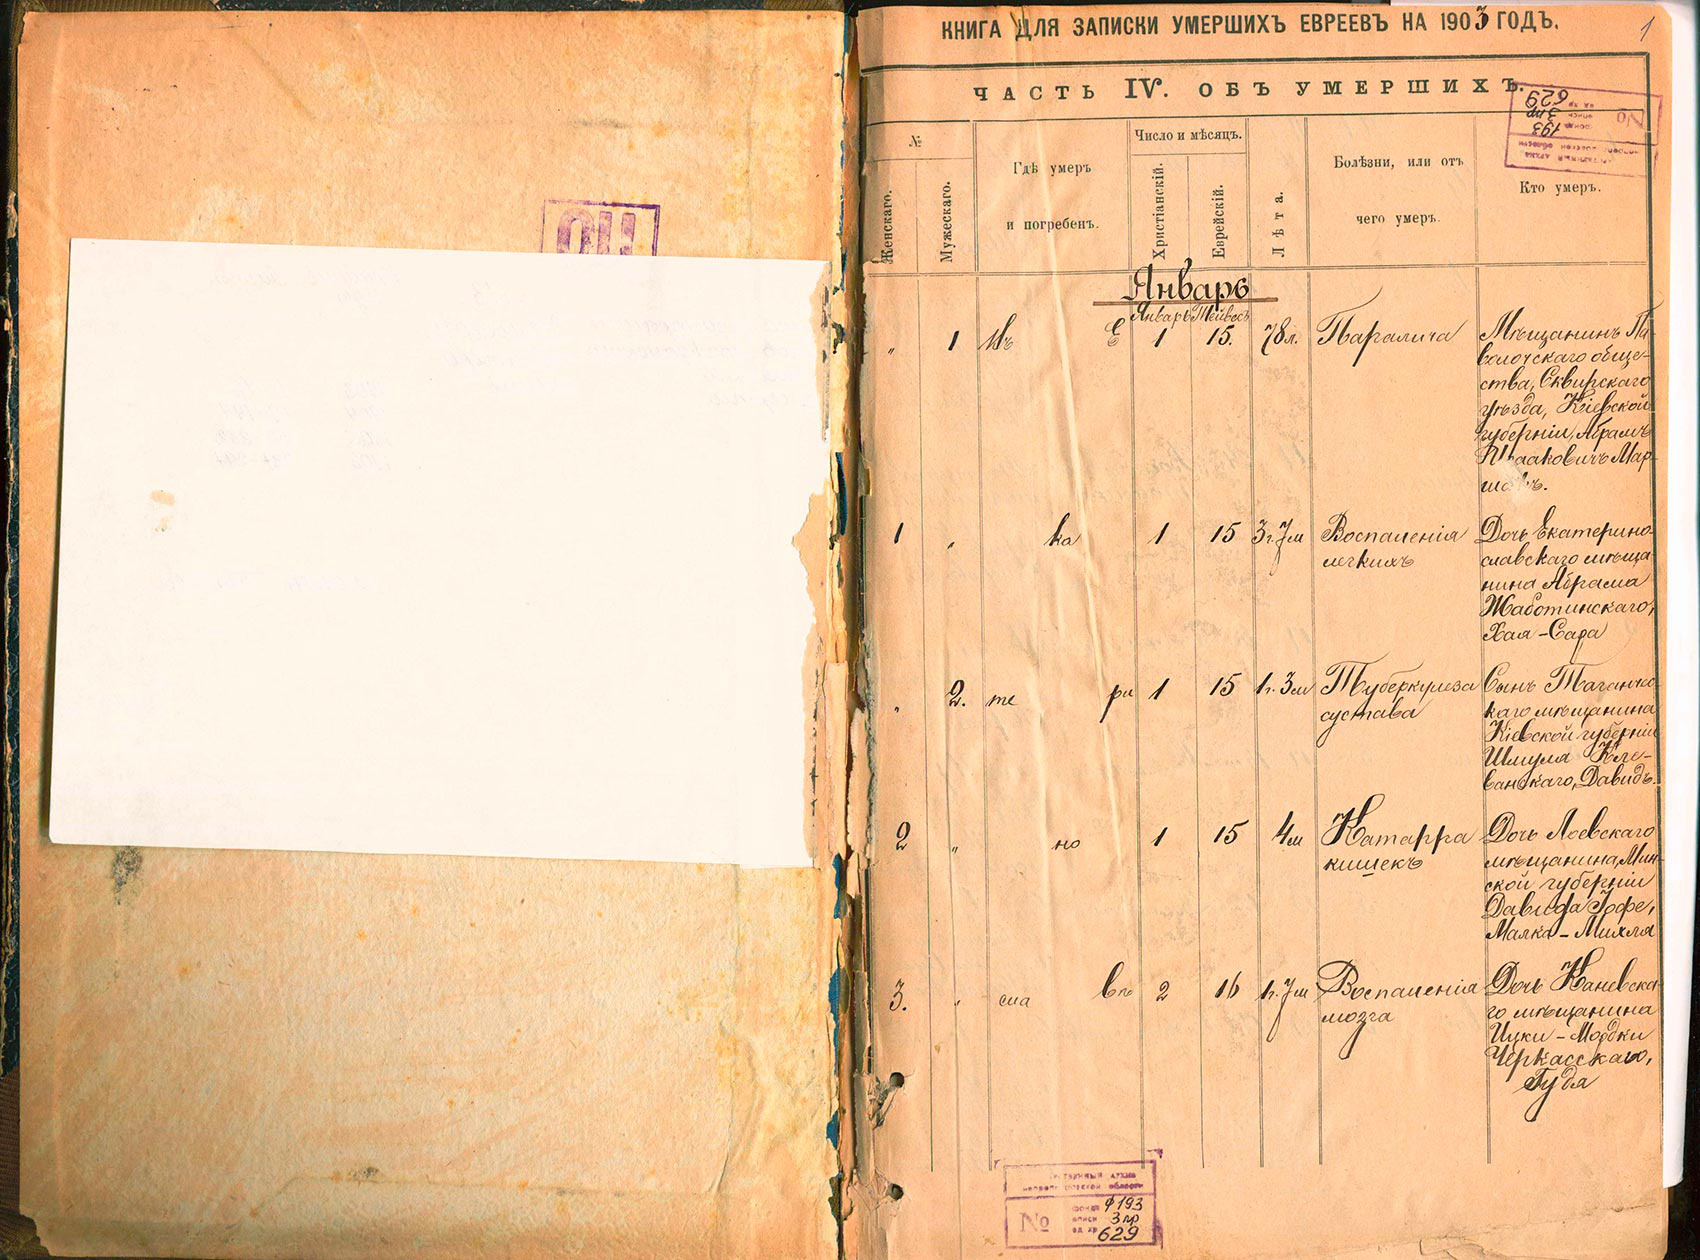 КНИГА ДЛЯ ЗАПИСКИ УМЕРШИХЪ ЕВРЕЕВЪ НА 1903 ГОДЪ.
1
ЧАСТЬ IV. ОБЪ УМЕРШИХЪ.
№
Женскаго.
Мужескаго.
Гдѣ умеръ
и погребенъ.
Число и мѣсяцъ.
Христіанскій.
Еврейскій.
Лѣта.
Болѣзни, или отъ
чего умеръ.
Кто умеръ.
№
193
3пр
629
Январь
Январь Тейвесъ
" 1 Въ Е 1 15. 78 л. Паралича
Мѣщанинъ Па-
волочскаго обще-
ства, Сквирскаго
уѣзда, Кіевской
губерніи, Абрамъ
Ицааковичъ Мар-
1 " ка 1 15 3 г. 7 м Воспаленія
легкихъ
Дочь Екатерино-
славскаго мѣща-
нина Абрама
Жаботинскаго,
Хая-Сара
" 2. те ри 1 15 1 г. 3 м Туберкулеза
сустава
Сынъ Таганчес-
каго мѣщанина
Кіевской губерніи
Шмуля Кле-
ванскаго, Давидъ.
2 " но 1 15 4 м Катарра
кишекъ
Дочь Лоевскаго
мѣщанина, Мин-
ской губерніи
Давида Іофе,
Малка-Михля
3. " сла въ 2 16 1 г. 7 м Воспаленія
мозга
Дочь Каневска-
го мѣщанина
Ицки-Мордки
Черкасскаго,
Гудя
№
Ф 193
3 пр
629